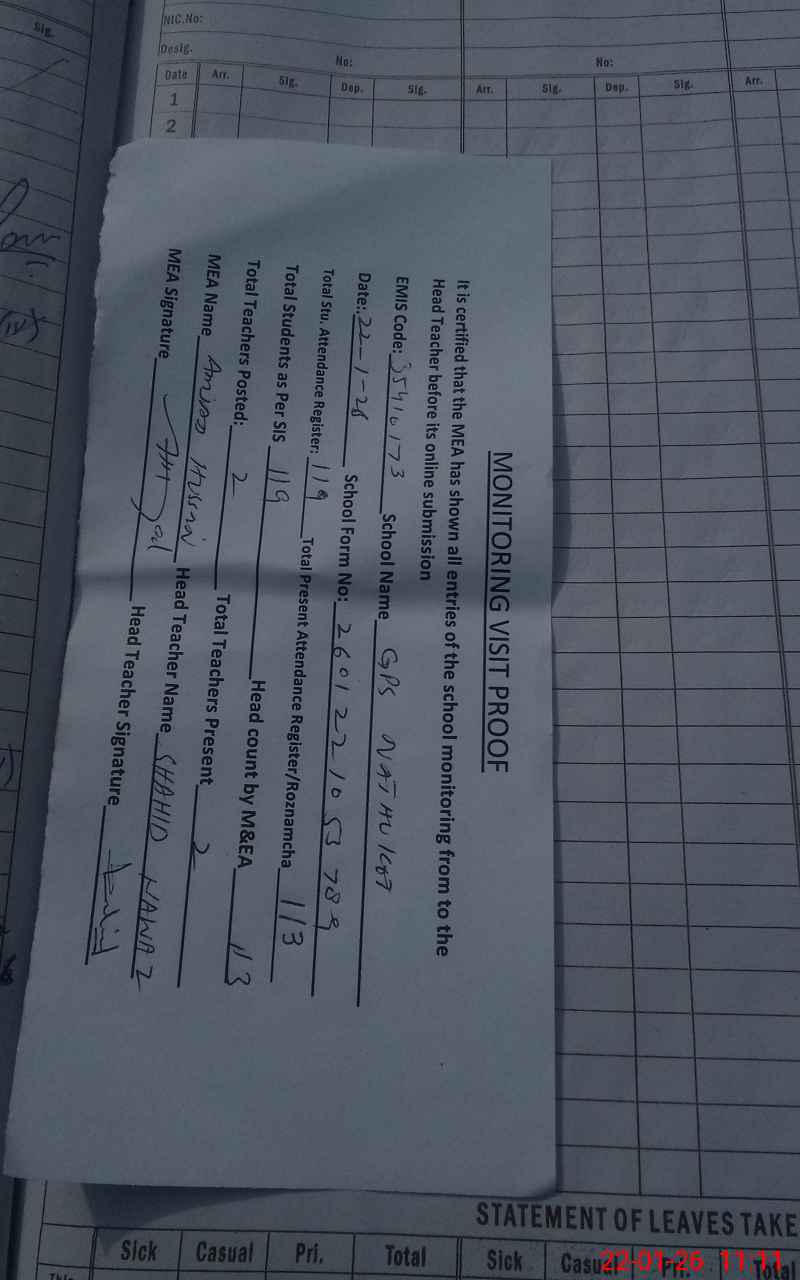 Sig.
NIC.No:
Desig.
No: No:
Date Arr. Sig. Dep. Sig. Arr. Sig. Dep. Sig. Arr.
1
2
MONITORING VISIT PROOF
It is certified that the MEA has shown all entries of the school monitoring from to the
Head Teacher before its online submission
EMIS Code: 35410173 School Name GPS NATHU KOT
Date:. 22-1-26 School Form No: 2601221053789
Total Stu. Attendance Register: 119 Total Present Attendance Register/Roznamcha 113
Total Students as Per SIS 119 Head count by M&EA 113
Total Teachers Posted: 2 Total Teachers Present 2
MEA Name Hussain Head Teacher Name SHAHID NAWAZ
MEA Signature Head Teacher Signature
STATEMENT OF LEAVES TAKE
Sick Casual Pri. Total Sick Casual Pri. Total
This
22-01-26 11:11